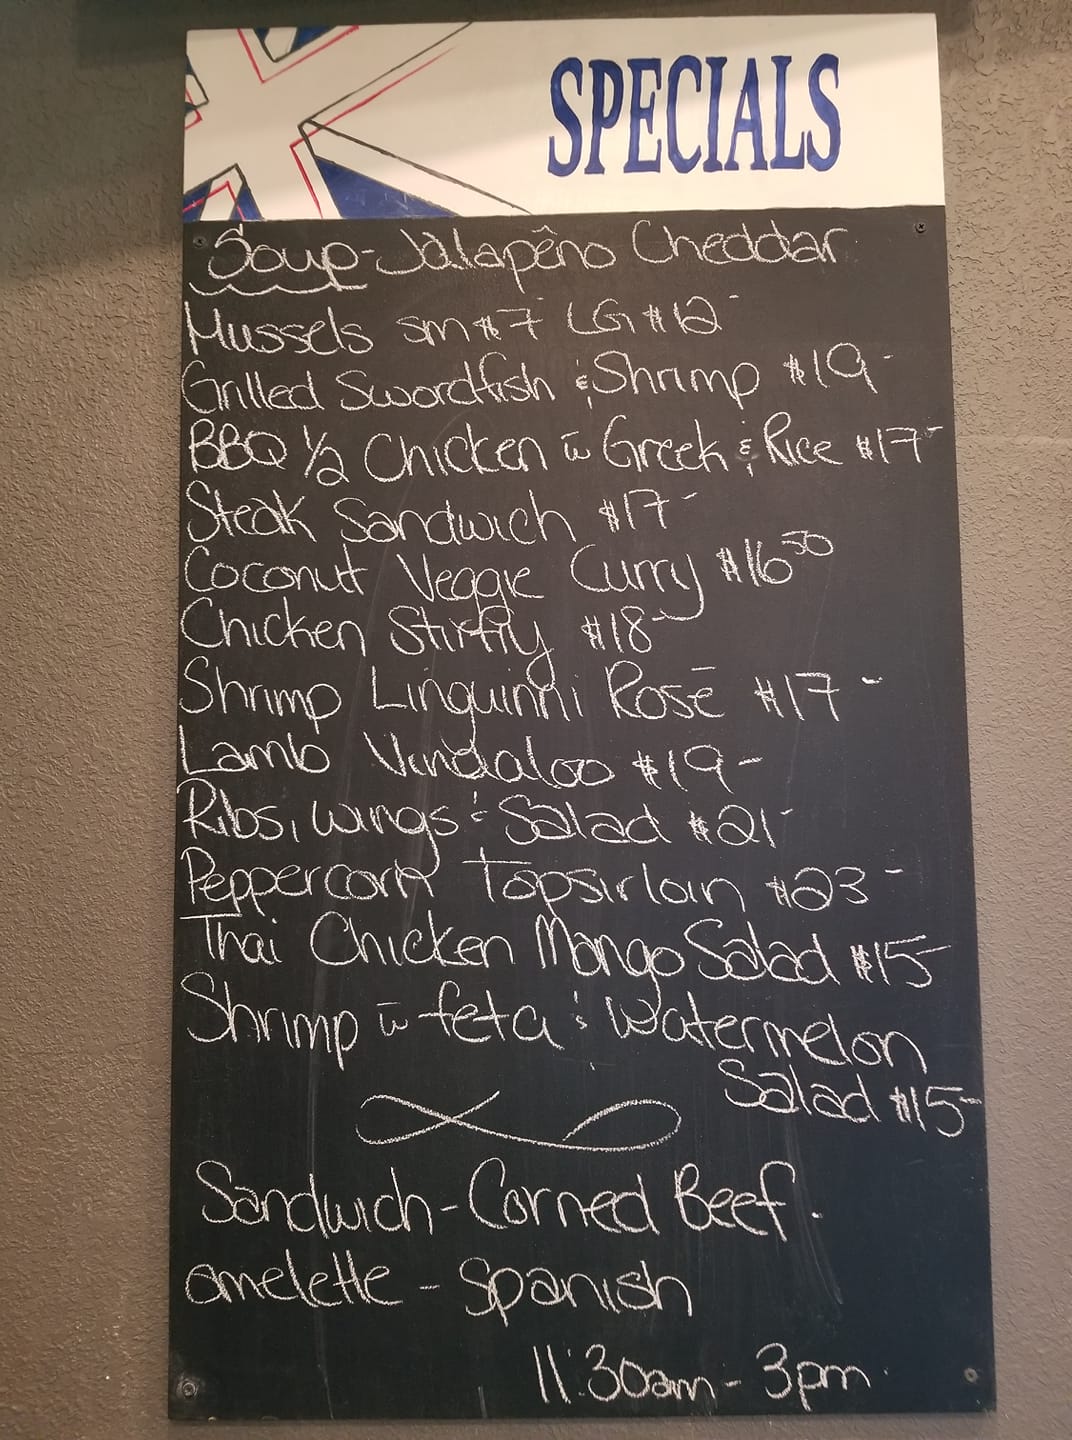 SPECIALS
Soup-Jalapêno Cheddar
Mussels sm $7- LG $12-
Grilled Swordfish & Shrimp $19-
BBQ 1/2 Chicken w̄ Greek & Rice $17-
Steak Sandwich $17-
Coconut Veggie Curry $16⁵⁰
Chicken Stirfry $18-
Shrimp Linguinni Rosē $17-
Lamb Vindaloo $19-
Ribs, wings & Salad $21-
Peppercorn Topsirloin $23-
Thai Chicken Mango Salad $15-
Shrimp w̄ feta & Watermelon
Salad $15-
Sandwich-Corned Beef.
omelette - Spanish
11:30am - 3pm.